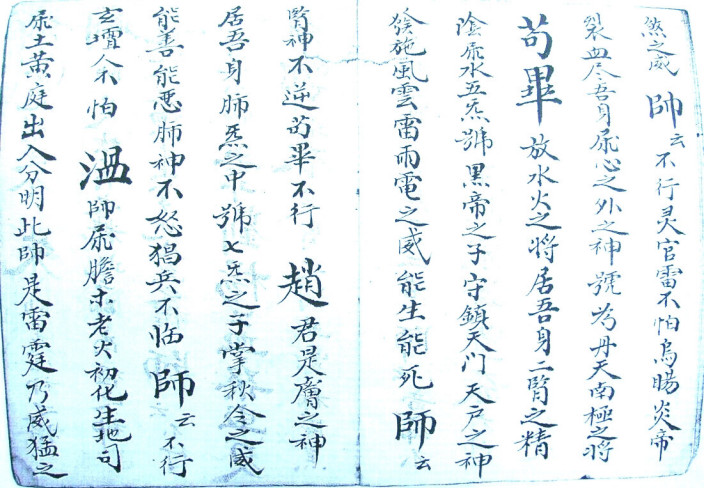 然之威 帥云不行灵官雷不怕烏賜炎帝
裂血尽吾身屬心之外之神號为丹天南極之将
苟畢 放水火之将居吾身二腎之精
陰屬水五炁號黒帝之子守鎮天门天户之神
發施風雲雷雨電之威能生能死 師云
腎神不逆苟畢不行 趙 君是膚之神
居吾身肺炁之中號七炁之子掌秋令之威
能善能恶肺神不怒猖兵不临 師云不行
玄壇人不怕 温 師屬膽木老火初化生地司
屬土黄庭出入分明此帥是雷霆乃威猛之